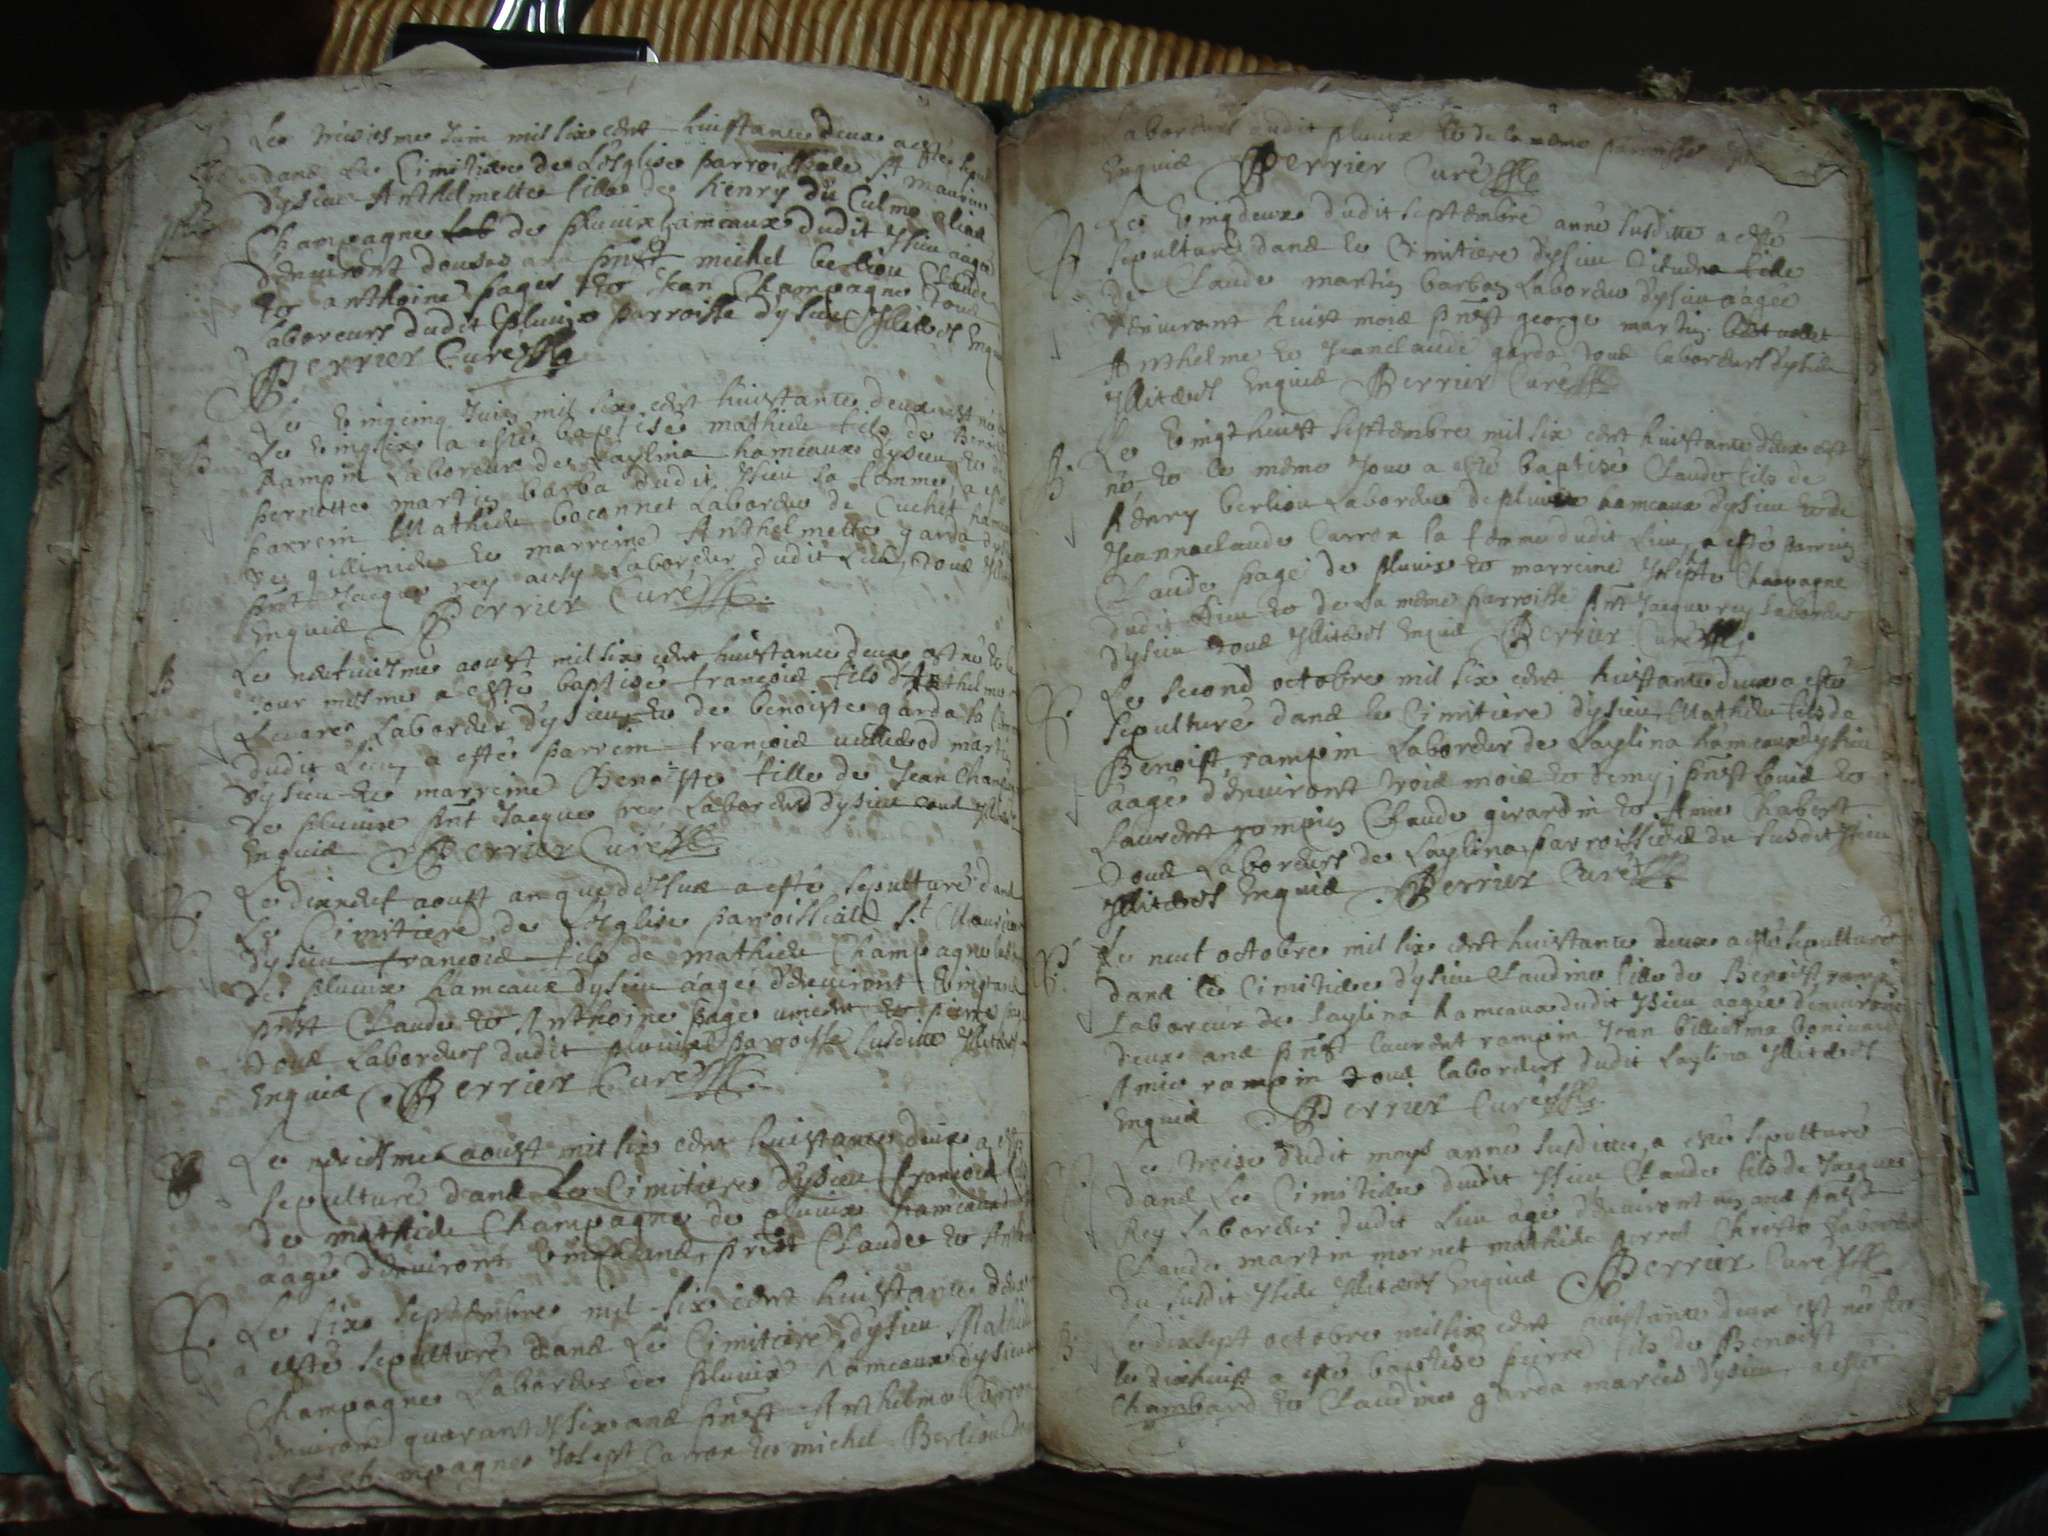 Le treiziesme Juin mil six cent huictante deux a esté sepul
dans le Cimitiere de L'Esglise parroissiale St Mauris
dysieu Anthelmette fille de henry du Culme alias
Champagne de pluvix hameaux dudit ysieu aagee
d'environt douses ans pnst michel berliou Claude
et anthoine pages et Jean Champagne tous
Laboreurs dudit pluvix parroisse dysieu Illiterés Enquis
Perrier Curé
Le vingcinq Juin mil six cent huictante deux est né
Le vingsix a esté baptisé mathieu fils de Benoi
rampin Laboreur de Laylina hameaux dysieu et de
pernette martin barba dudit ysieu sa femme, a esté
parrein Mathieu boconnet Laboreur de Cuchet hameau
de gillinieu et marreine Anthelmette garda dysieu
pnt Jacque rey aussy Laboreur dudit Lieu, tous Illi
Enquis Perrier Curé
Le neufviesme aoust mil six cent huictante deux est né et le
jour mesme a esté baptisé francois fils d'Anthelme
Laboreur dysieu et de benoiste garda sa femme
dudit Lieu, a esté parrein francois martin
dysieu et marreine Benoiste fille de Jean Cham
de pluvix pnt Jacque rey Laboreur dysieu tous
Enquis Perrier Curé
Le dixneuf aoust an que dessus a esté sepulturé dans
Le Cimitiere de L'Esglise parroissiale St Mauris
dysieu francois fils de mathieu Champagne
de pluvix hameaux dysieu aagé d'environt vingt ans
pnst Claude et Anthoine page et pierre
tous Laboreurs dudit pluvix parroisse susditte Illiterés
Enquis Perrier Curé
Le aoust mil six cent huictante deux a esté
sepulturé dans Le Cimitiere dysieu francois fils
de mathieu Champagne de pluvix hameaux
aagé d'environt vingt ans, pnst Claude et Anth
Le six septembre mil six cent huictante deux
a esté sepulturé dans Le Cimitiere dysieu Mathieu
Champagne Laboreur de pluvix hameaux dysieu
d'environt quarant six ans pnst Anthelme Carron
Champagne Joseph Carron et michel Berliou
Laboreurs dudit pluvix et de la meme parroisse
Enquis Perrier Curé
Le vingdeux dudit septembre anné susditte a esté
sepulturé dans le Cimitiere dysieu fille
de Claude martin barban Laboreur dysieu aagée
d'environt huict mois pnst george martin
Anthelme et Jeanclaude garda tous laboreurs dysieu
Illiterés Enquis Perrier Curé
Le vingt huict septembre mil six cent huictante deux est
né et le meme Jour a esté baptisé Claude fils de
henry berliou Laboreur de pluvix hameaux dysieu et de
Jeanneclaude Carron sa femme dudit Lieu, a esté parrein
Claude page de pluvix et marreine Champagne
dudit Lieu et de La meme parroisse pnt Jacque rey laboreur
dysieu tous Illiterés Enquis Perrier Curé
Le second octobre mil six cent huictante deux a esté
sepulturé dans le Cimitiere dysieu, Mathieu fils de
Benoist rampin Laboreur de Laylina hameaux dysieu
aagé d'environt trois mois et demy, pnst Louis et
Laurent rampin Claude girardin et Ame Chabert
tous Laboreurs de Laylina parroissiens du susdit ysieu
Illiterés Enquis Perrier Curé
Le neuf octobre mil six cent huictante deux a esté sepulturé
dans le Cimitiere dysieu Claudine fille de Benoist rampin
Laboreur de Laylina hameaux dudit ysieu aagée d'environt
deux ans pnst laurent rampin Jean
Amie rampin tous laboreurs dudit Laylina Illiterés
Enquis Perrier Curé
Le treise dudit moys anné susditte, a esté sepulturé
dans Le Cimitiere dudit ysieu Claude fils de Jacques
Rey Laboreur dudit Lieu agé d'environt un ans pnst
Claude martin mornet mathieu perret Laboreurs
du susdit ysieu Illiterés Enquis Perrier Curé
Le dixsept octobre mil six cent huictante deux est né et
le dixhuict a esté baptisé pierre fils de Benoist
Chambard et Claudine garda mariés dysieu, a esté